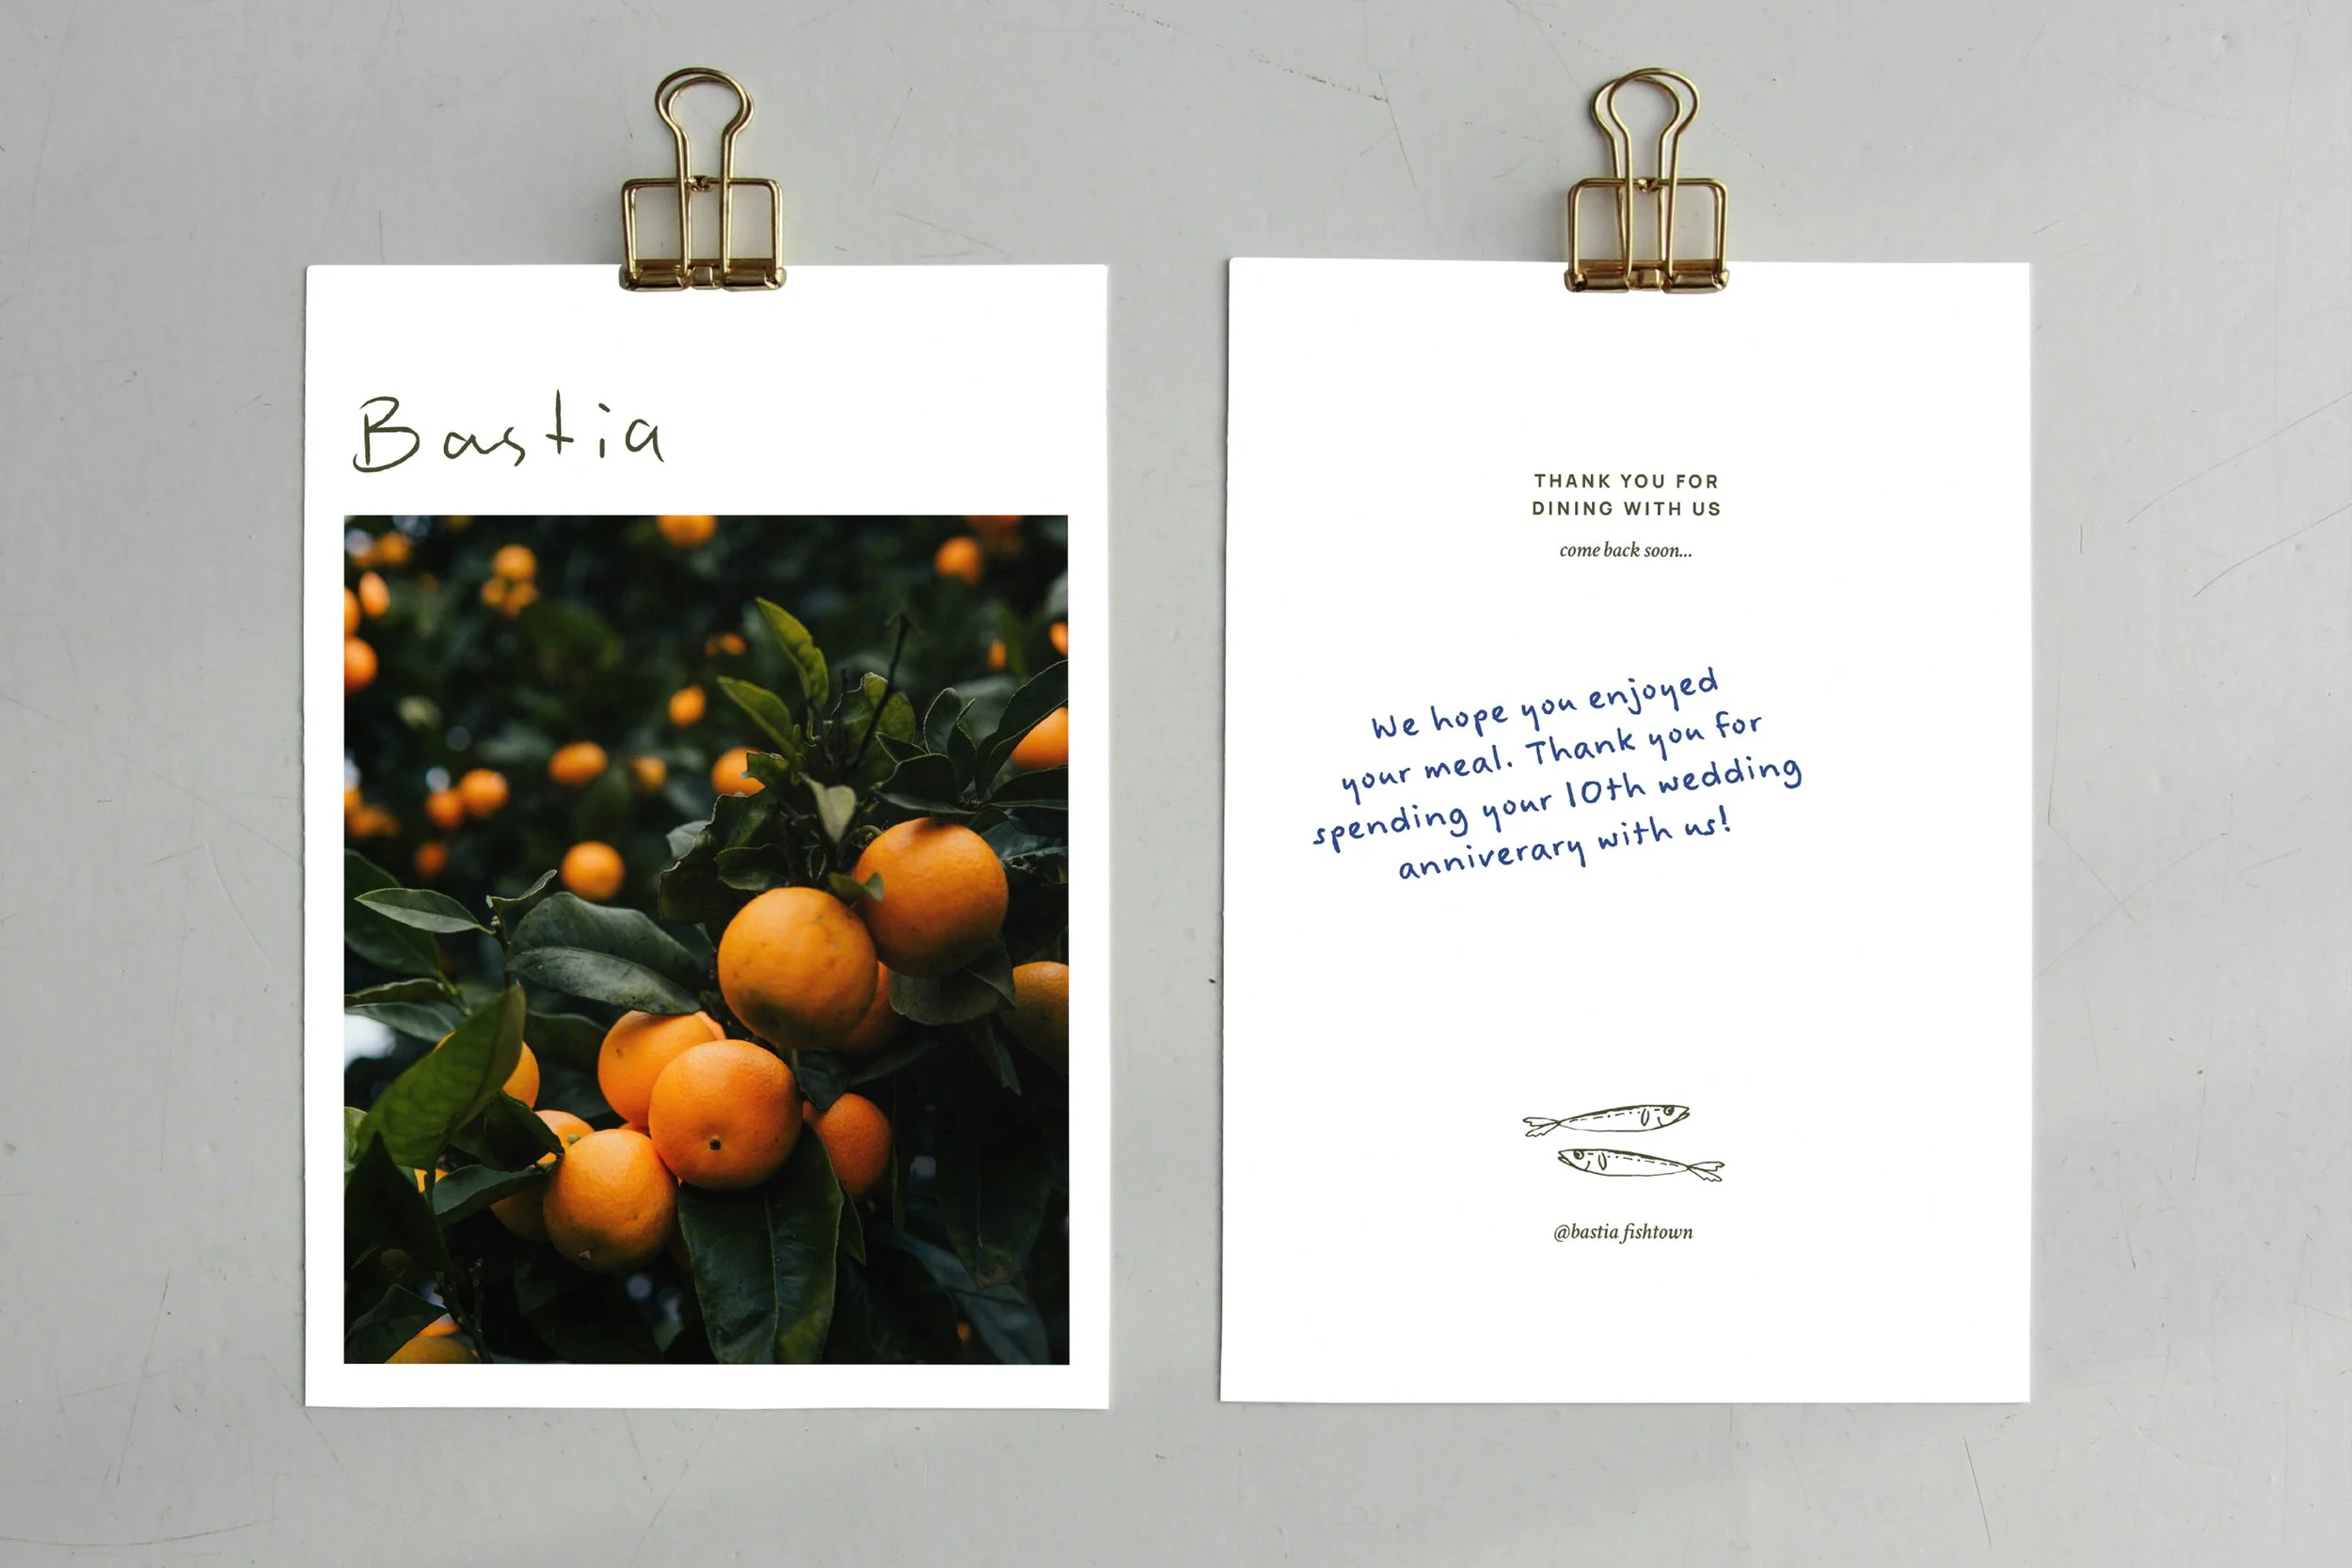 Bastia
THANK YOU FOR
DINING WITH US
come back soon...
We hope you enjoyed
your meal. Thank you for
spending your 10th wedding
anniverary with us!
@bastia fishtown